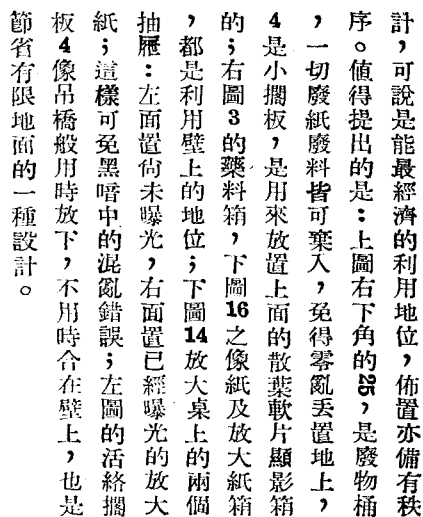 計，可說是能最經濟的利用地位，佈置亦備有秩
序。值得提出的是：上圖右下角的25，是廢物桶
，一切廢紙廢料皆可棄入，免得零亂丟置地上，
4是小擱板，是用來放置上面的散葉軟片顯影箱
的；右圖3的藥料箱，下圖16之像紙及放大紙箱
，都是利用壁上的地位；下圖14放大桌上的兩個
抽屜：左面置尙未曝光，右面置已經曝光的放大
紙；這樣可免黑暗中的混亂錯誤；左圖的活絡擱
板4像吊橋般用時放下，不用時合在壁上，也是
節省有限地面的一種設計。